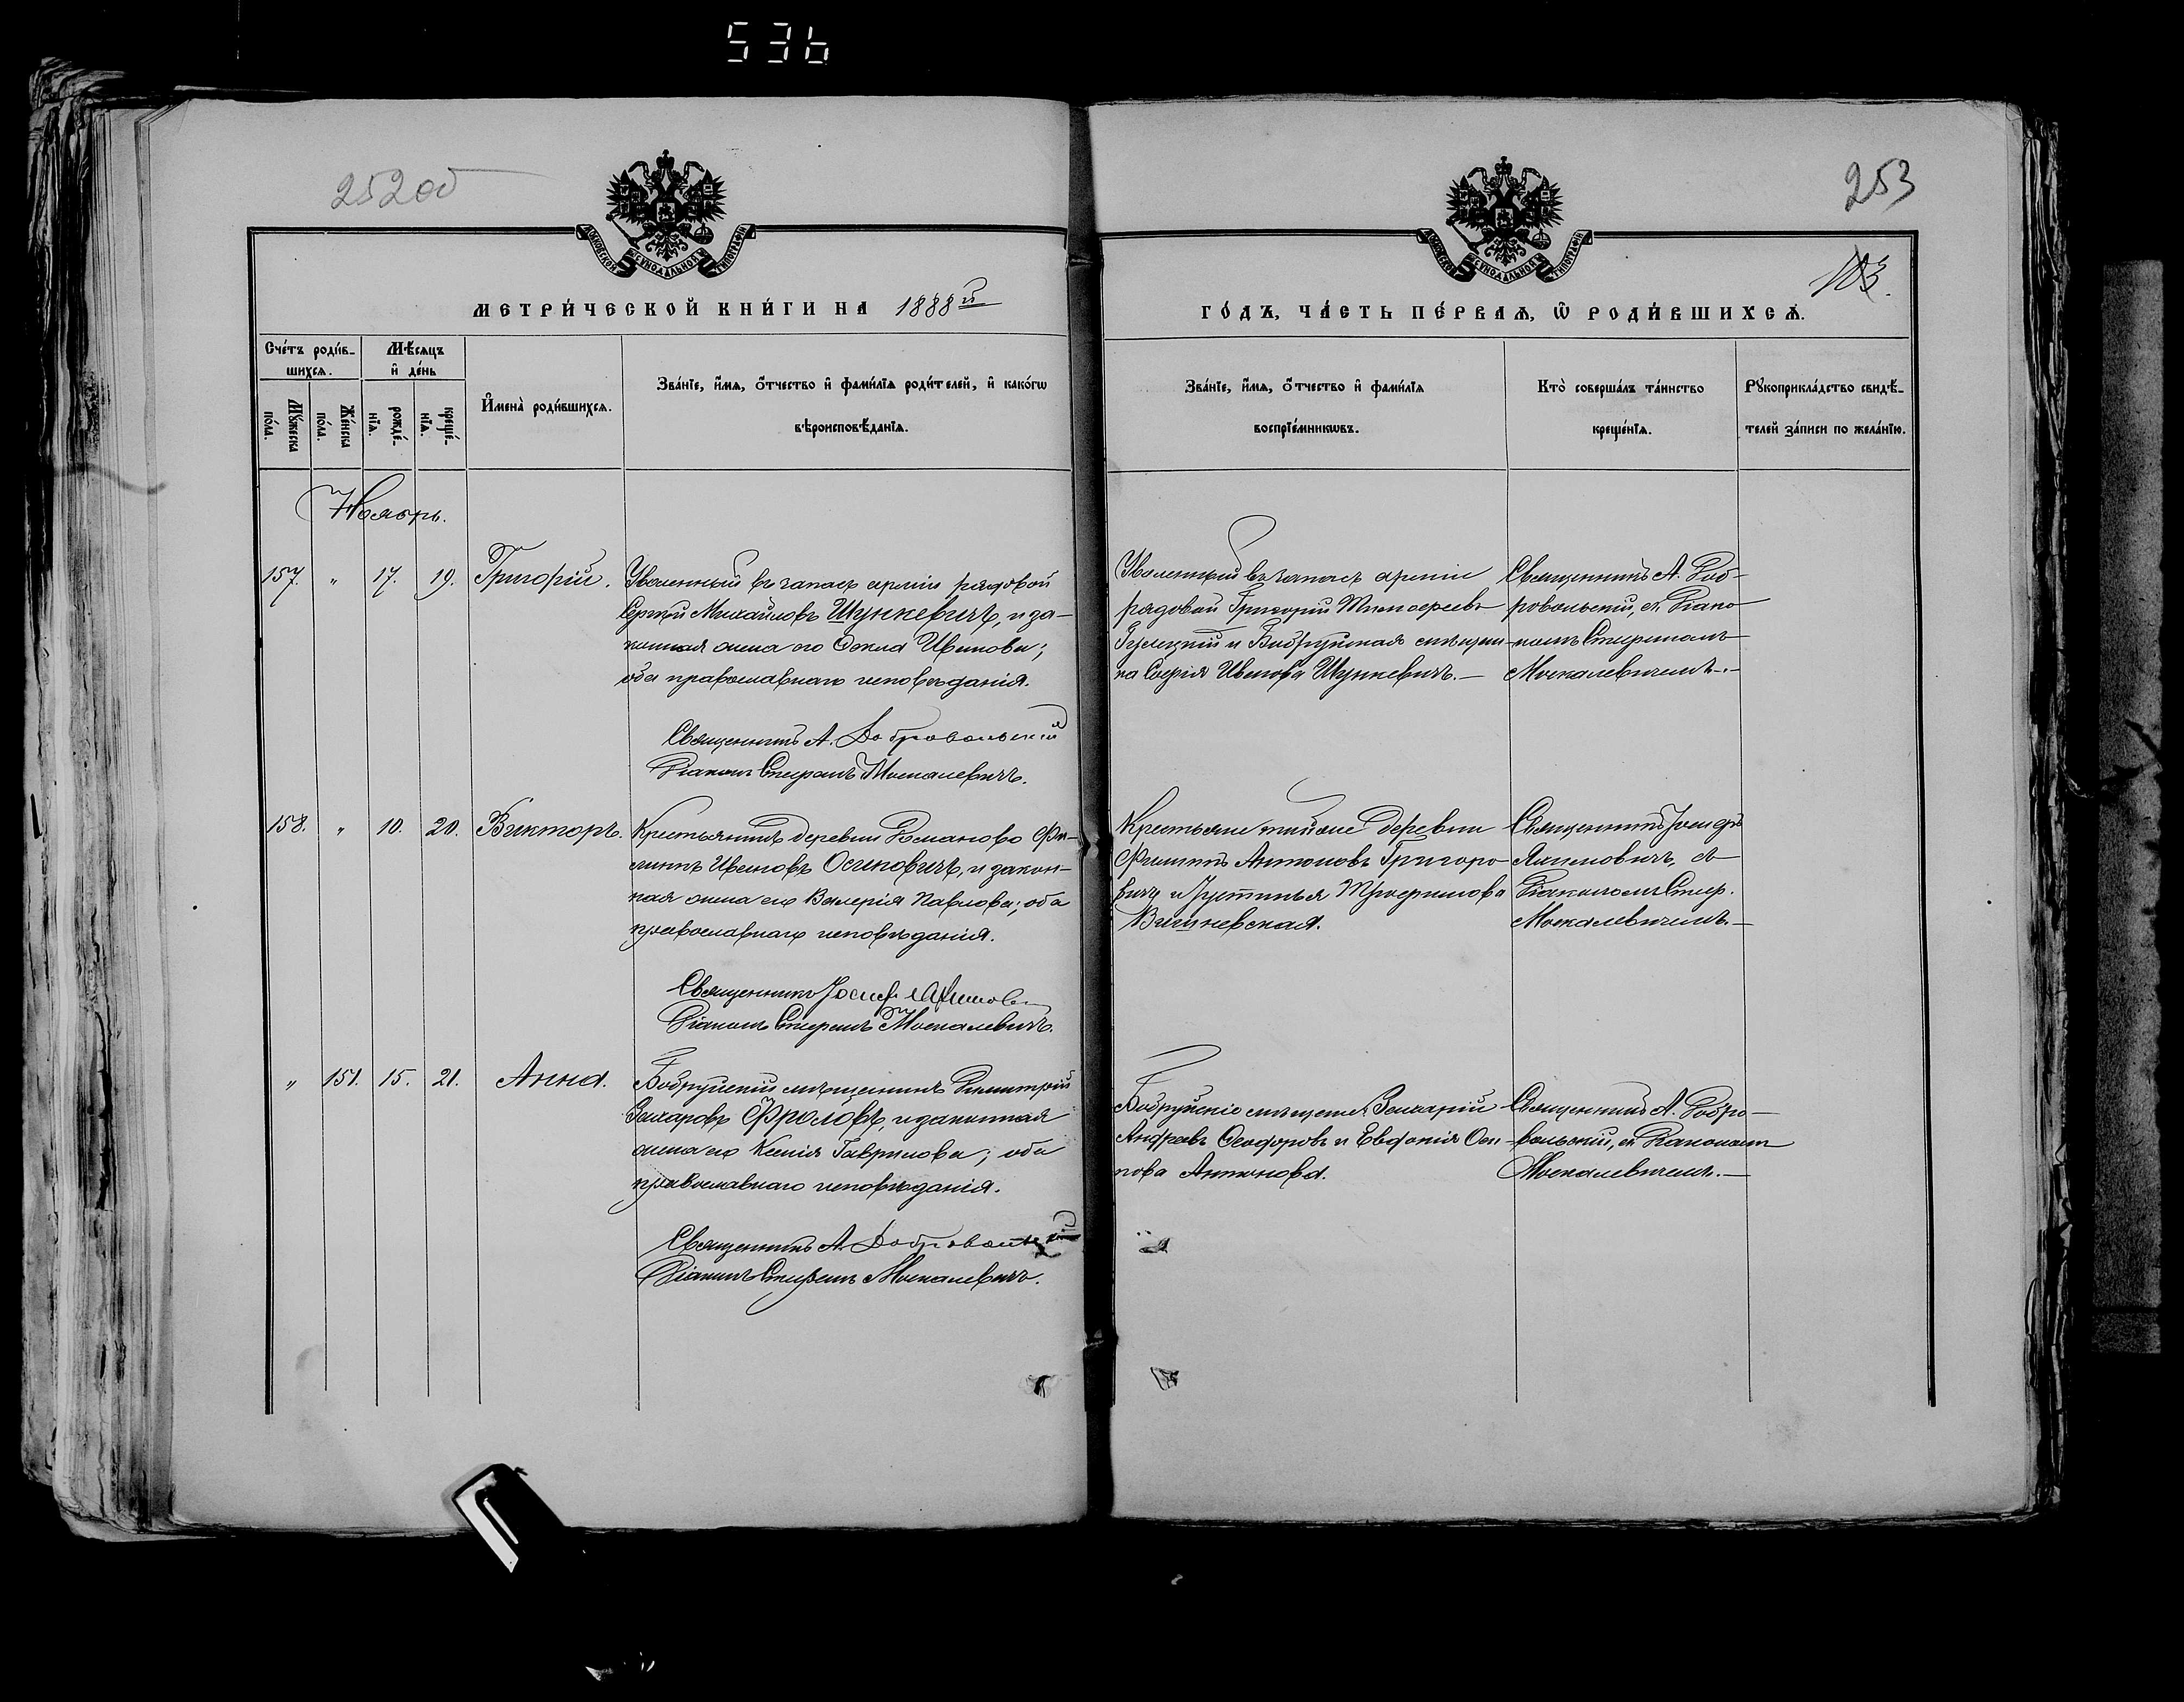 536
252 об
253
103.
МОСКОВСКОЙ СѴНОДАЛЬНОЙ ТИПОГРАФІИ
МОСКОВСКОЙ СѴНОДАЛЬНОЙ ТИПОГРАФІИ
МЕТРИ́ЧЕСКОЙ КНИ́ГИ НА 1888й
ГО́ДЪ, ЧА́СТЬ ПЕ́РВАѦ, Ѡ҆ РОДИ́ВШИХСѦ.
Сче́тъ роди́в-
шихсѧ.
Мѣ́сѧцъ
и҆ де́нь
Мꙋ́жеска
по́ла.
Же́нска
по́ла.
рожде́-
нїѧ.
креще́-
нїѧ.
И҆мена̀ роди́вшихсѧ.
Зва́нїе, и҆́мѧ, ѻ҆́тчество и҆ фами́лїѧ роди́телей, и҆ како́гѡ
вѣроисповѣ́данїѧ.
Зва́нїе, и҆́мѧ, ѻ҆́тчество и҆ фами́лїѧ
воспрїе́мникѡвъ.
Кто̀ соверша́лъ та́инство
креще́нїѧ.
Рꙋкоприкла́дство свидѣ́-
телей за́писи по жела́нїю.
Ноябрь.
157. " 17. 19. Григорій.
Уволенный въ запасъ арміи рядовой
Сергѣй Михайловъ Шункевичъ, и за-
конная жена его Ѳекла Иванова;
оба православнаго исповѣданія.
Священникъ А. Добровольскій
Діаконъ Спирид. Москалевичъ.
Уволенный въ запасъ арміи
рядовой Григорій Тимоѳеевъ
и Бобруйская мѣщан-
ка Софія Иванова Шункевичъ.—
Священникъ А. Доб-
ровольскій, съ Діако-
номъ
Москалевичемъ.—
158. " 10. 20. Викторъ.
Крестьянинъ деревни Романово Фи-
липпъ Ивановъ Осиповичъ, и закон-
ная жена его Валерія Павлова; оба
православнаго исповѣданія.
Священникъ Іосифъ Якимов
Діаконъ Москалевичъ.
Крестьяне деревни
Филиппъ Антоновъ Григоро-
вичъ и Іустинья Трофимова
Вишневская.
Священникъ Іосифъ
Якимовичъ, съ
Діакономъ Спир.
Москалевичемъ.—
" 151. 15. 21. Анна.
Бобруйскій мѣщанинъ Димитрій
Захаровъ Фроловъ, и законная
жена его Ксенія Гаврилова; оба
православнаго исповѣданія.
Священникъ А. Добровольскій
Діаконъ Москалевичъ.
Бобруйскіе мѣщане: Захарій
Андреевъ Ѳеодоровъ и Евдокія Оси-
пова Антонова.
Священникъ А. Добро-
вольскій, съ Діакономъ
Москалевичемъ.—